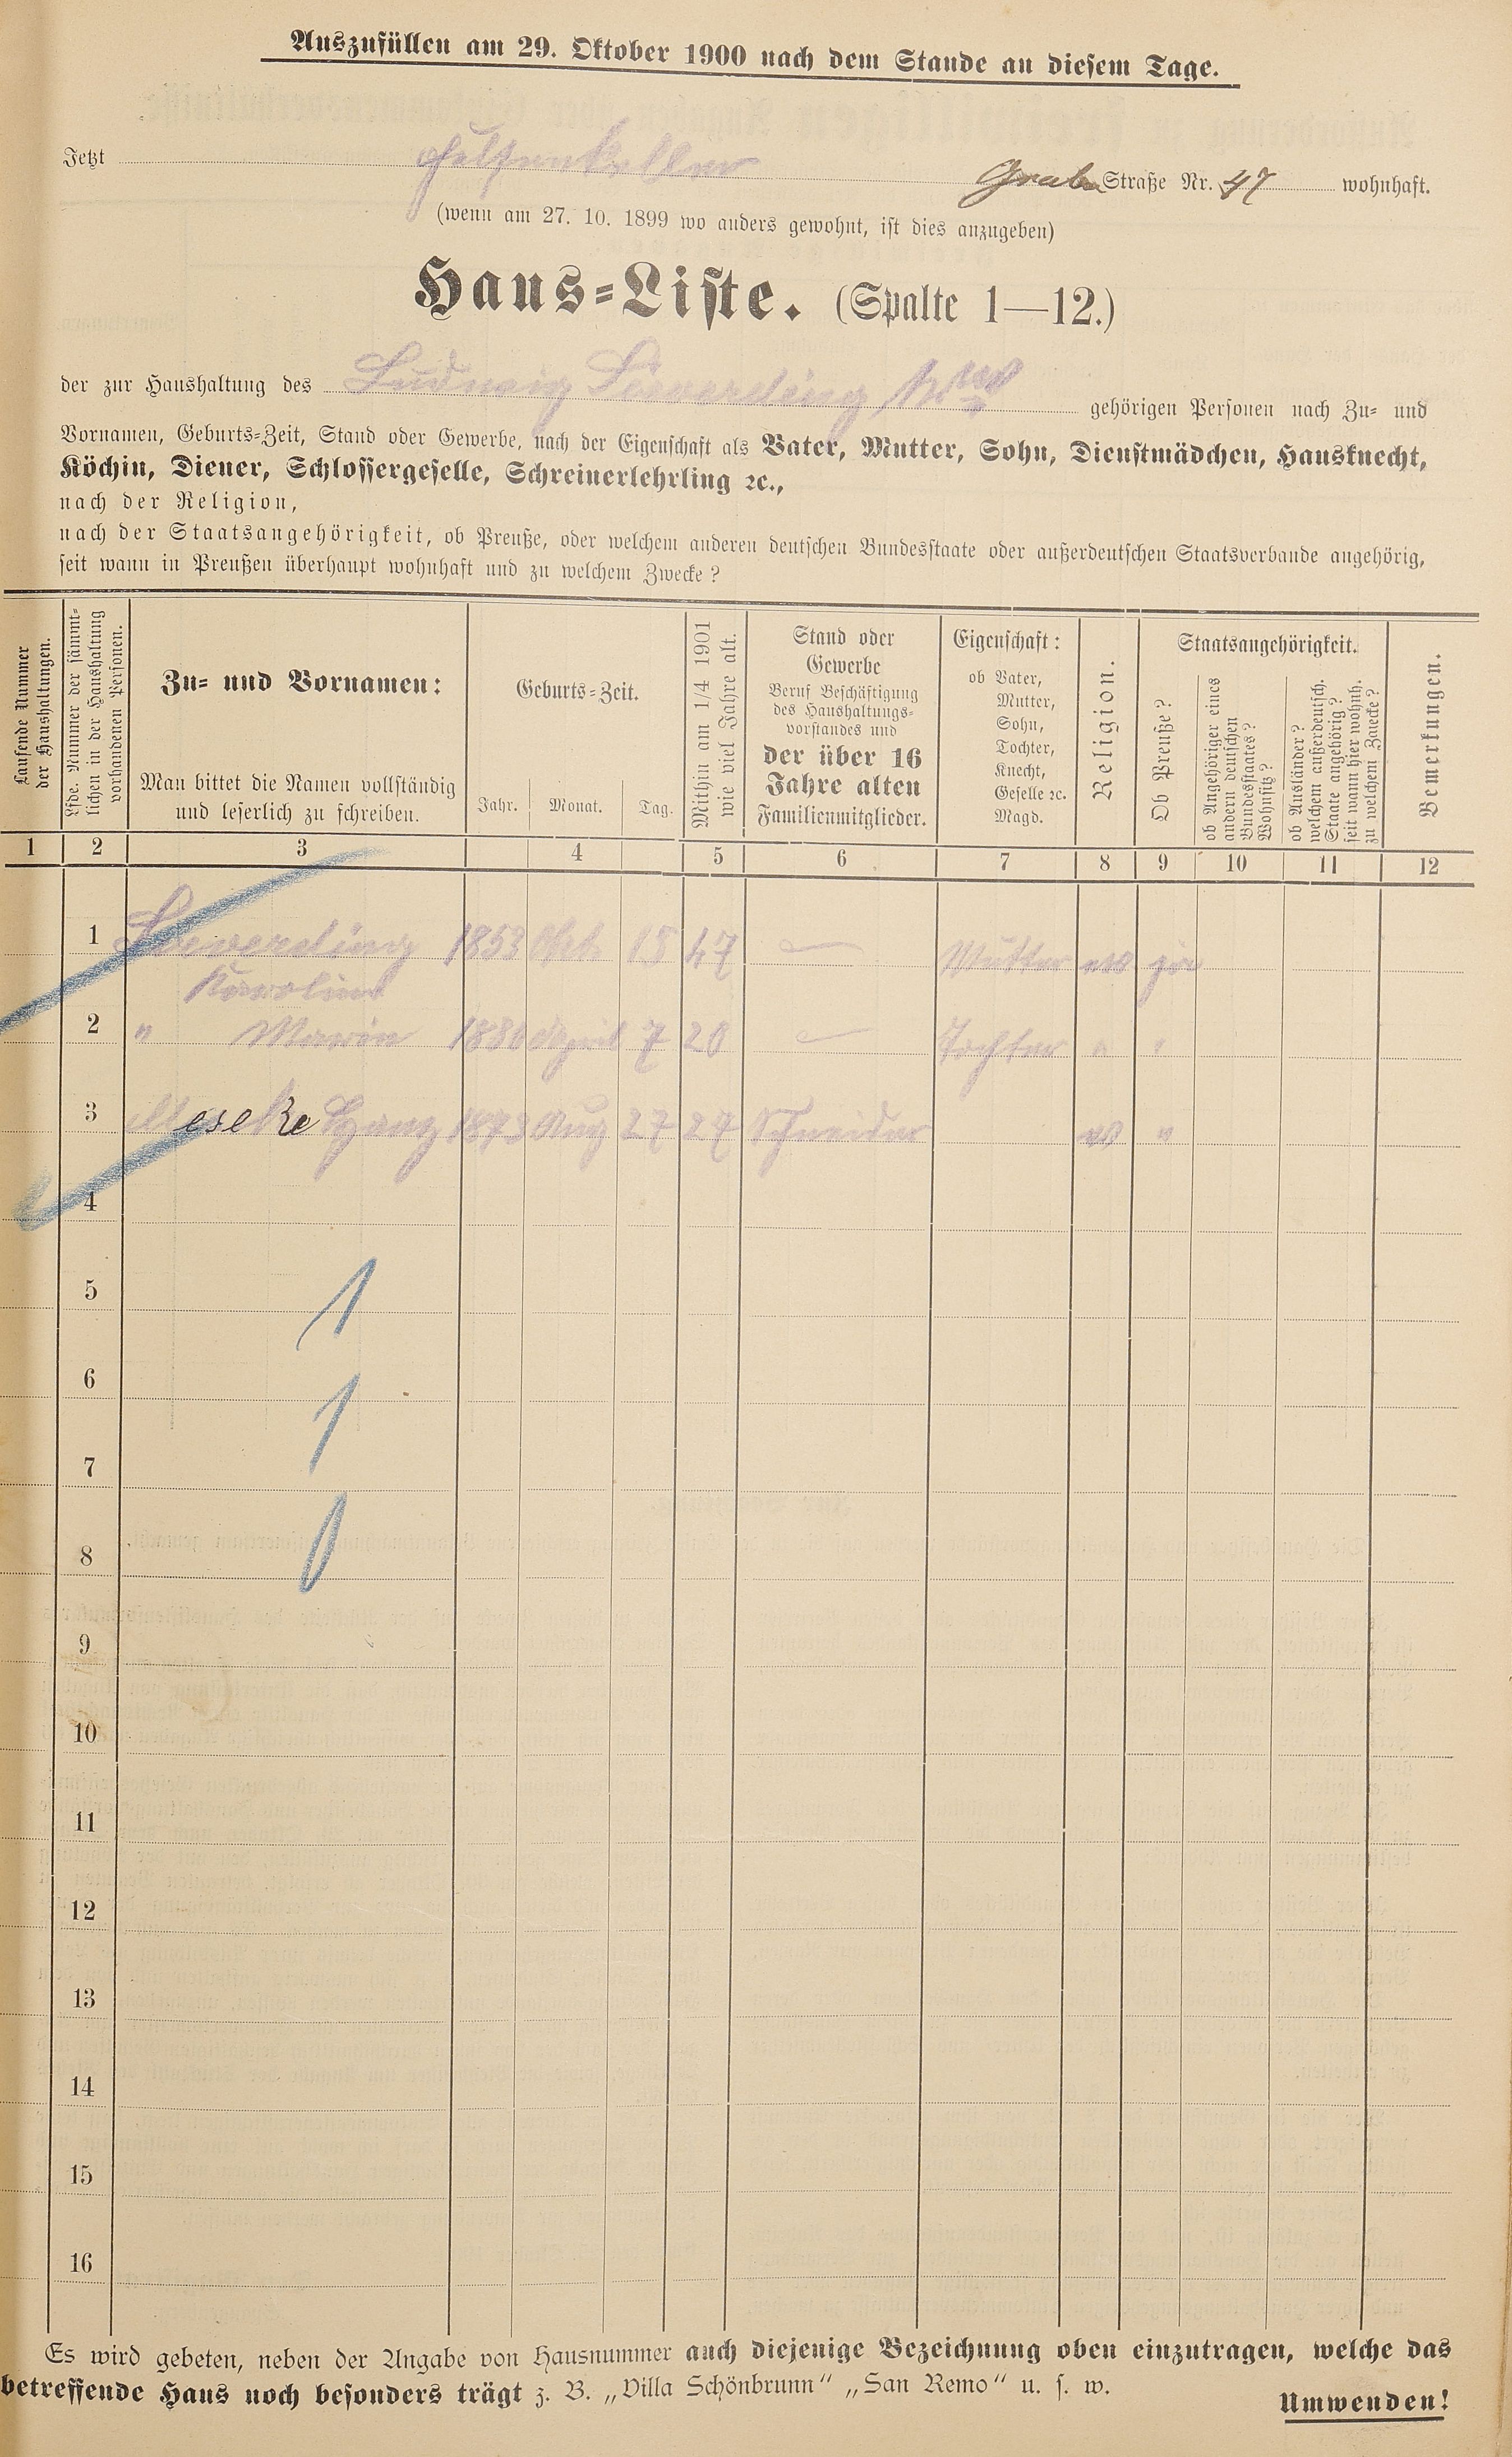 Auszufüllen am 29. Oktober 1900 nach dem Stande an diesem Tage.
Jetzt Felsenkeller Graben Straße Nr. 47 wohnhaft.
(wenn am 27. 10. 1899 wo anders gewohnt, ist dies anzugeben)
Haus-Liste. (Spalte 1—12.)
der zur Haushaltung des Ludwig Sieverding Wwe gehörigen Personen nach Zu- und
Vornamen, Geburts-Zeit, Stand oder Gewerbe, nach der Eigenschaft als Vater, Mutter, Sohn, Dienstmädchen, Hausknecht,
Köchin, Diener, Schlossergeselle, Schreinerlehrling ꝛc.,
nach der Religion,
nach der Staatsangehörigkeit, ob Preuße, oder welchem anderen deutschen Bundesstaate oder außerdeutschen Staatsverbande angehörig,
seit wann in Preußen überhaupt wohnhaft und zu welchem Zwecke?
Laufende Nummer
der Haushaltungen.
Lfde. Nummer der sämmt-
lichen in der Haushaltung
vorhandenen Personen.
Zu- und Vornamen:
Man bittet die Namen vollständig
und leserlich zu schreiben.
Geburts-Zeit.
Jahr. Monat. Tag.
Mithin am 1/4 1901
wie viel Jahre alt.
Stand oder
Gewerbe
Beruf Beschäftigung
des Haushaltungs-
vorstandes und
der über 16
Jahre alten
Familienmitglieder.
Eigenschaft:
ob Vater,
Mutter,
Sohn,
Tochter,
Knecht,
Geselle ꝛc.
Magd.
Religion.
Staatsangehörigkeit.
Ob Preuße?
ob Angehöriger eines
andern deutschen
Bundesstaates?
Wohnsitz?
ob Ausländer?
welchem außerdeutsch.
Staate angehörig?
seit wann hier wohnh.
zu welchem Zwecke?
Bemerkungen.
1 2 3 4 5 6 7 8 9 10 11 12
1 Sieverding 1853 Okt. 15 47 — Mutter ev ja
Karoline
2 " Marie 1880 April 7 20 — Tochter " "
3 Meseke 1873 Aug 27 27 Schneider ev "
4
5
1
6
1
7
8
0
9
10
11
12
13
14
15
16
Es wird gebeten, neben der Angabe von Hausnummer auch diejenige Bezeichnung oben einzutragen, welche das
betreffende Haus noch besonders trägt z. B. „Villa Schönbrunn“ „San Remo“ u. s. w.
Umwenden!